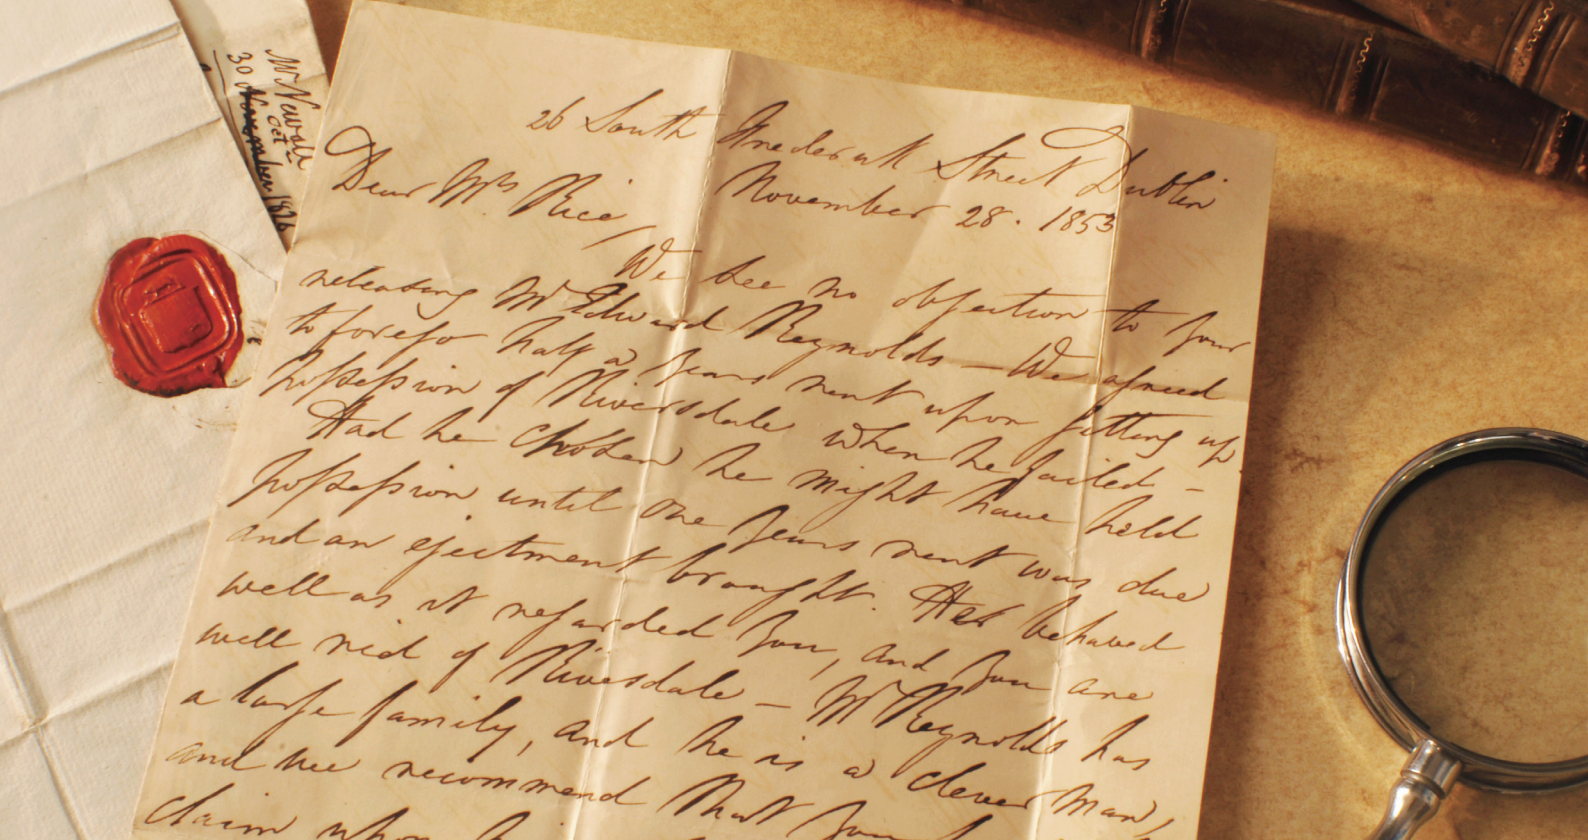 Mr Newall
Oct
30 November 1826
26 South Frederick Street Dublin
November 28. 1853
Dear Mrs Rice,
We see no objection to your
releasing Mr Edward Reynolds – We agreed
to forego half a years rent upon getting up
possession of Riversdale when he failed –
Had he chosen he might have held
possession until one years rent was due
and an ejectment brought. He behaved
well as it regarded you, and you are
well rid of Riversdale – Mr Reynolds has
a large family, and he is a clever man,
and we recommend that your
claim upon